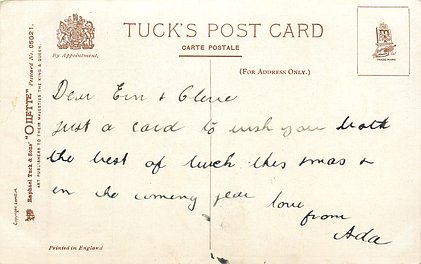 TUCK'S POST CARD
CARTE POSTALE
By Appointment.
(FOR ADDRESS ONLY.)
TRADE MARK
Raphael Tuck & Sons' "OILETTE" Postcard No. 05021.
ART PUBLISHERS TO THEIR MAJESTIES THE KING & QUEEN.
Dear & 
Just a card to wish you both
the best of luck this Xmas &
in the coming year love
from
Ada
Printed in England